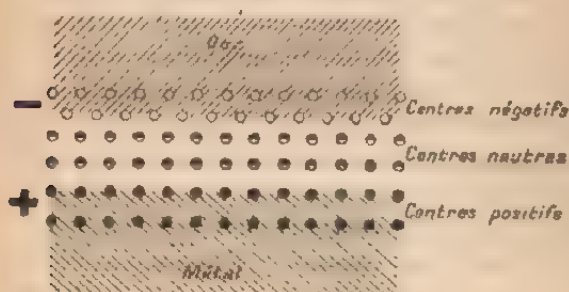 Centres négatifs
Centres neutres
Centres positifs
Métal